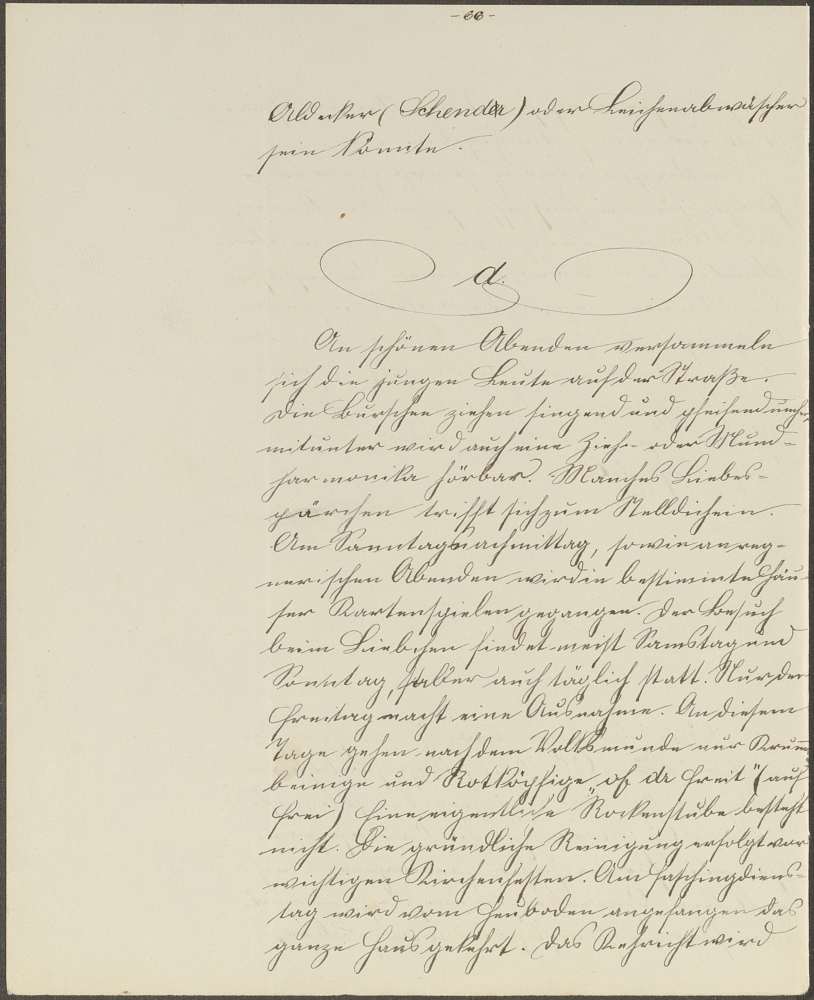 - 66 -
Aldecker (Schender) oder Leichenabwäscher
sein könnte.
d.
An schönen Abenden versammeln
sich die jungen Leute auf der Straße.
Die Burschen ziehen singend und pfeifend umher,
mitunter wird auch eine Zieh- oder Mund-
harmonika hörbar. Manches Liebes-
pärchen trifft sich zum Stelldichein.
Am Sonntagnachmittag, sowie an reg-
nerischen Abenden wird in bestimmte Häu-
ser Kartenspielen gegangen. Der Besuch
beim Liebchen findet meist Samstag und
Sonntag, aber auch täglich statt. Nur der
Freitag macht eine Ausnahme. An diesem
Tage gehen nach dem Volksmunde nur Krumm-
beinige und Rotköpfige „of da Freit" (auf
Frei) Eine eigentliche Rockenstube besteht
nicht. Die gründliche Reinigung erfolgt vor
wichtigen Kirchenfesten. Am Faschingdiens-
tag wird vom Heuboden angefangen das
ganze Haus gekehrt. Das Kehricht wird